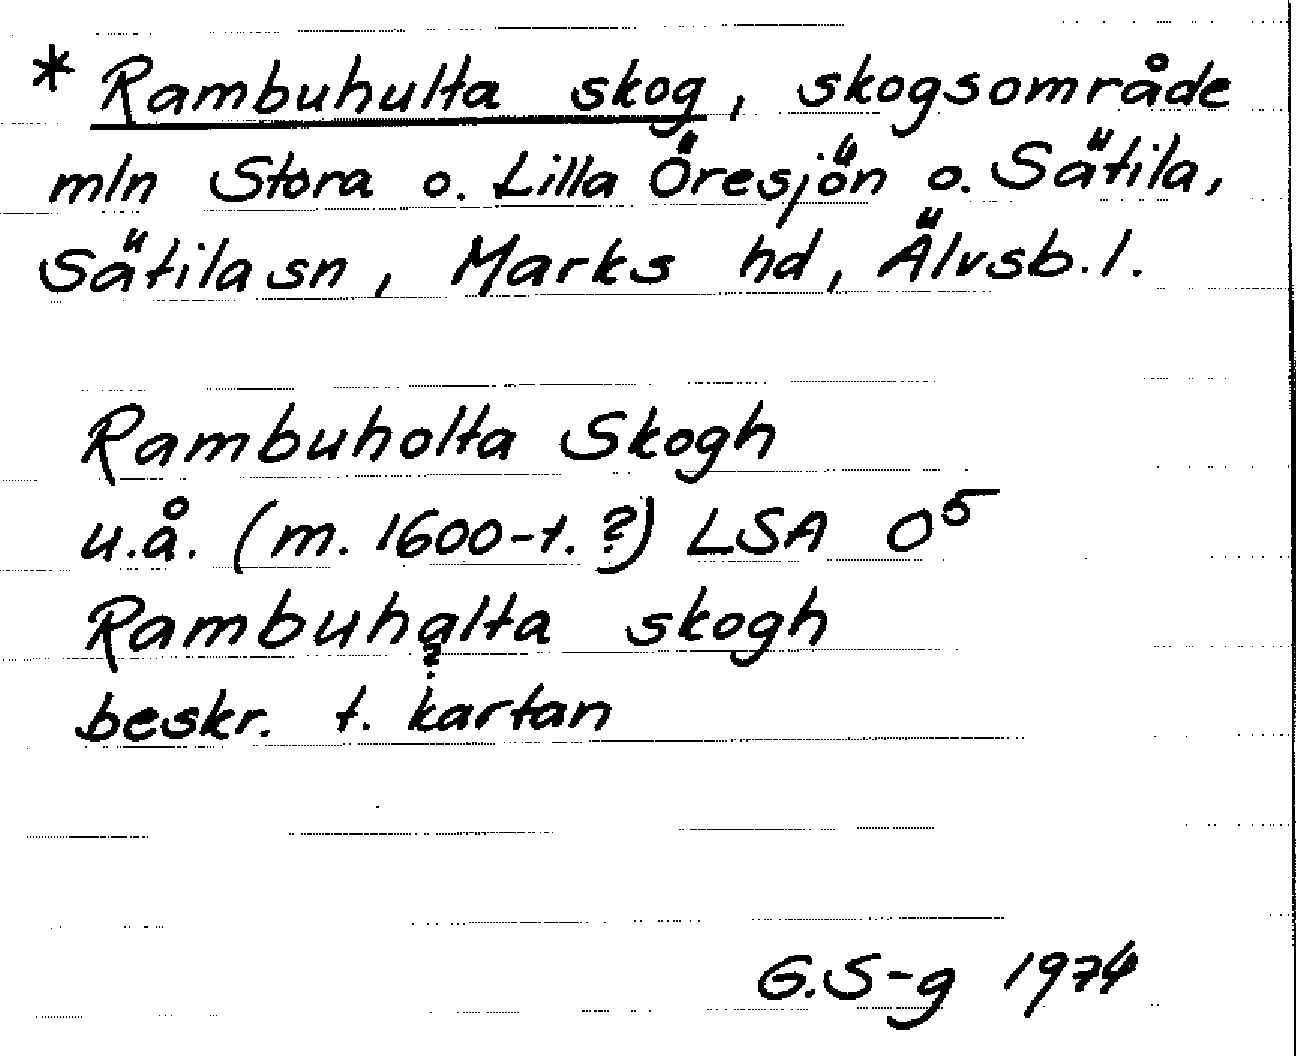 * Rambuhulta skog, skogsområde
mln Stora o. Lilla Öresjön o. Sätila,
Sätila sn, Marks hd, Älvsb. l.
Rambuholta Skogh
u.å. (m. 1600-t.?) LSA O⁵
Rambuhalta skogh
?
beskr. t. kartan
G.S-g 1974